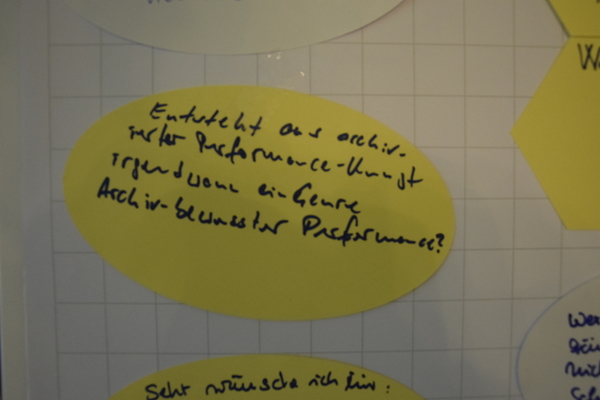 Entsteht aus archiv-
ierter Performance-Kunst
irgendwann ein Genre
Archiv-bewusster Performance?
Sehr wünsche ich mir: